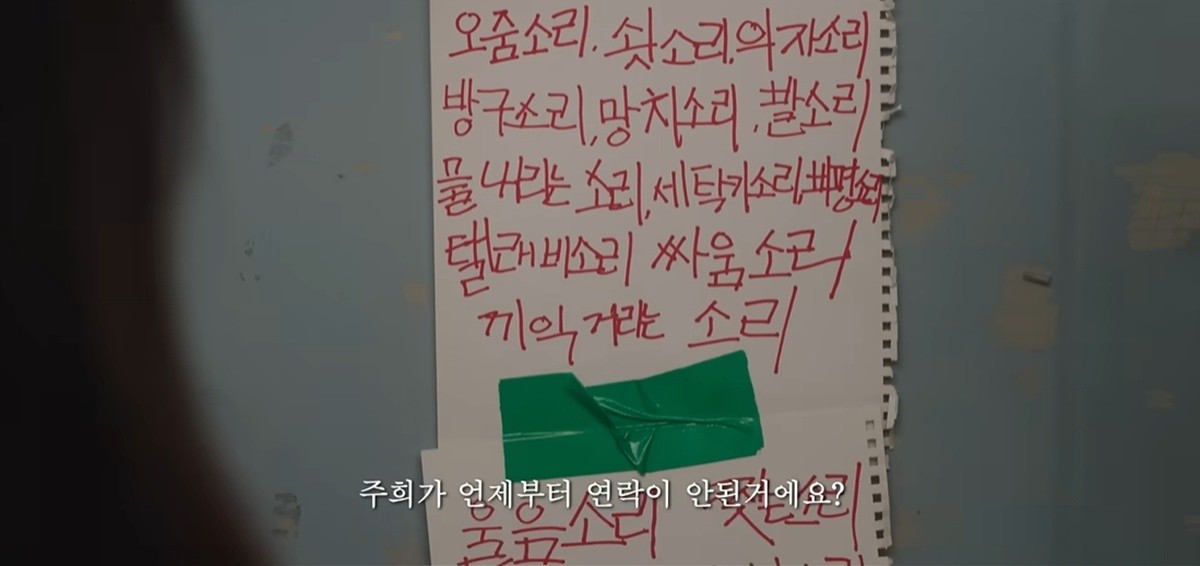 오줌소리. 쇳소리. 의자소리
방구소리, 망치소리, 발소리
물 내리는 소리, 세탁기소리,
텔레비소리 싸움소리
끼익거리는 소리
주희가 언제부터 연락이 안된거에요?
울음소리